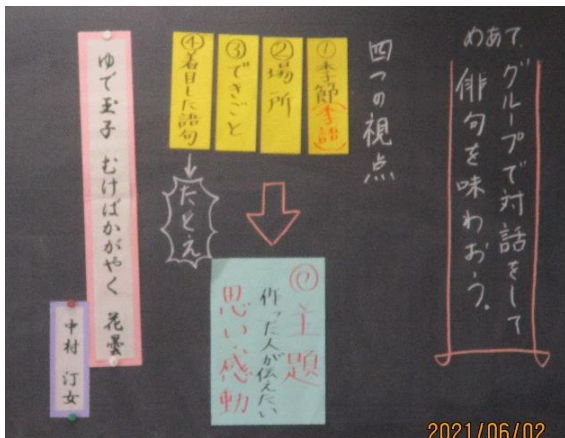 めあて
グループで対話をして
俳句を味わおう。
四つの視点
①季節(季語)
②場所
③できごと
④着目した語句
たとえ
◎主題
作った人が伝えたい
思い・感動
ゆで玉子 むけばかがやく 花曇
中村 汀女
2021/06/02